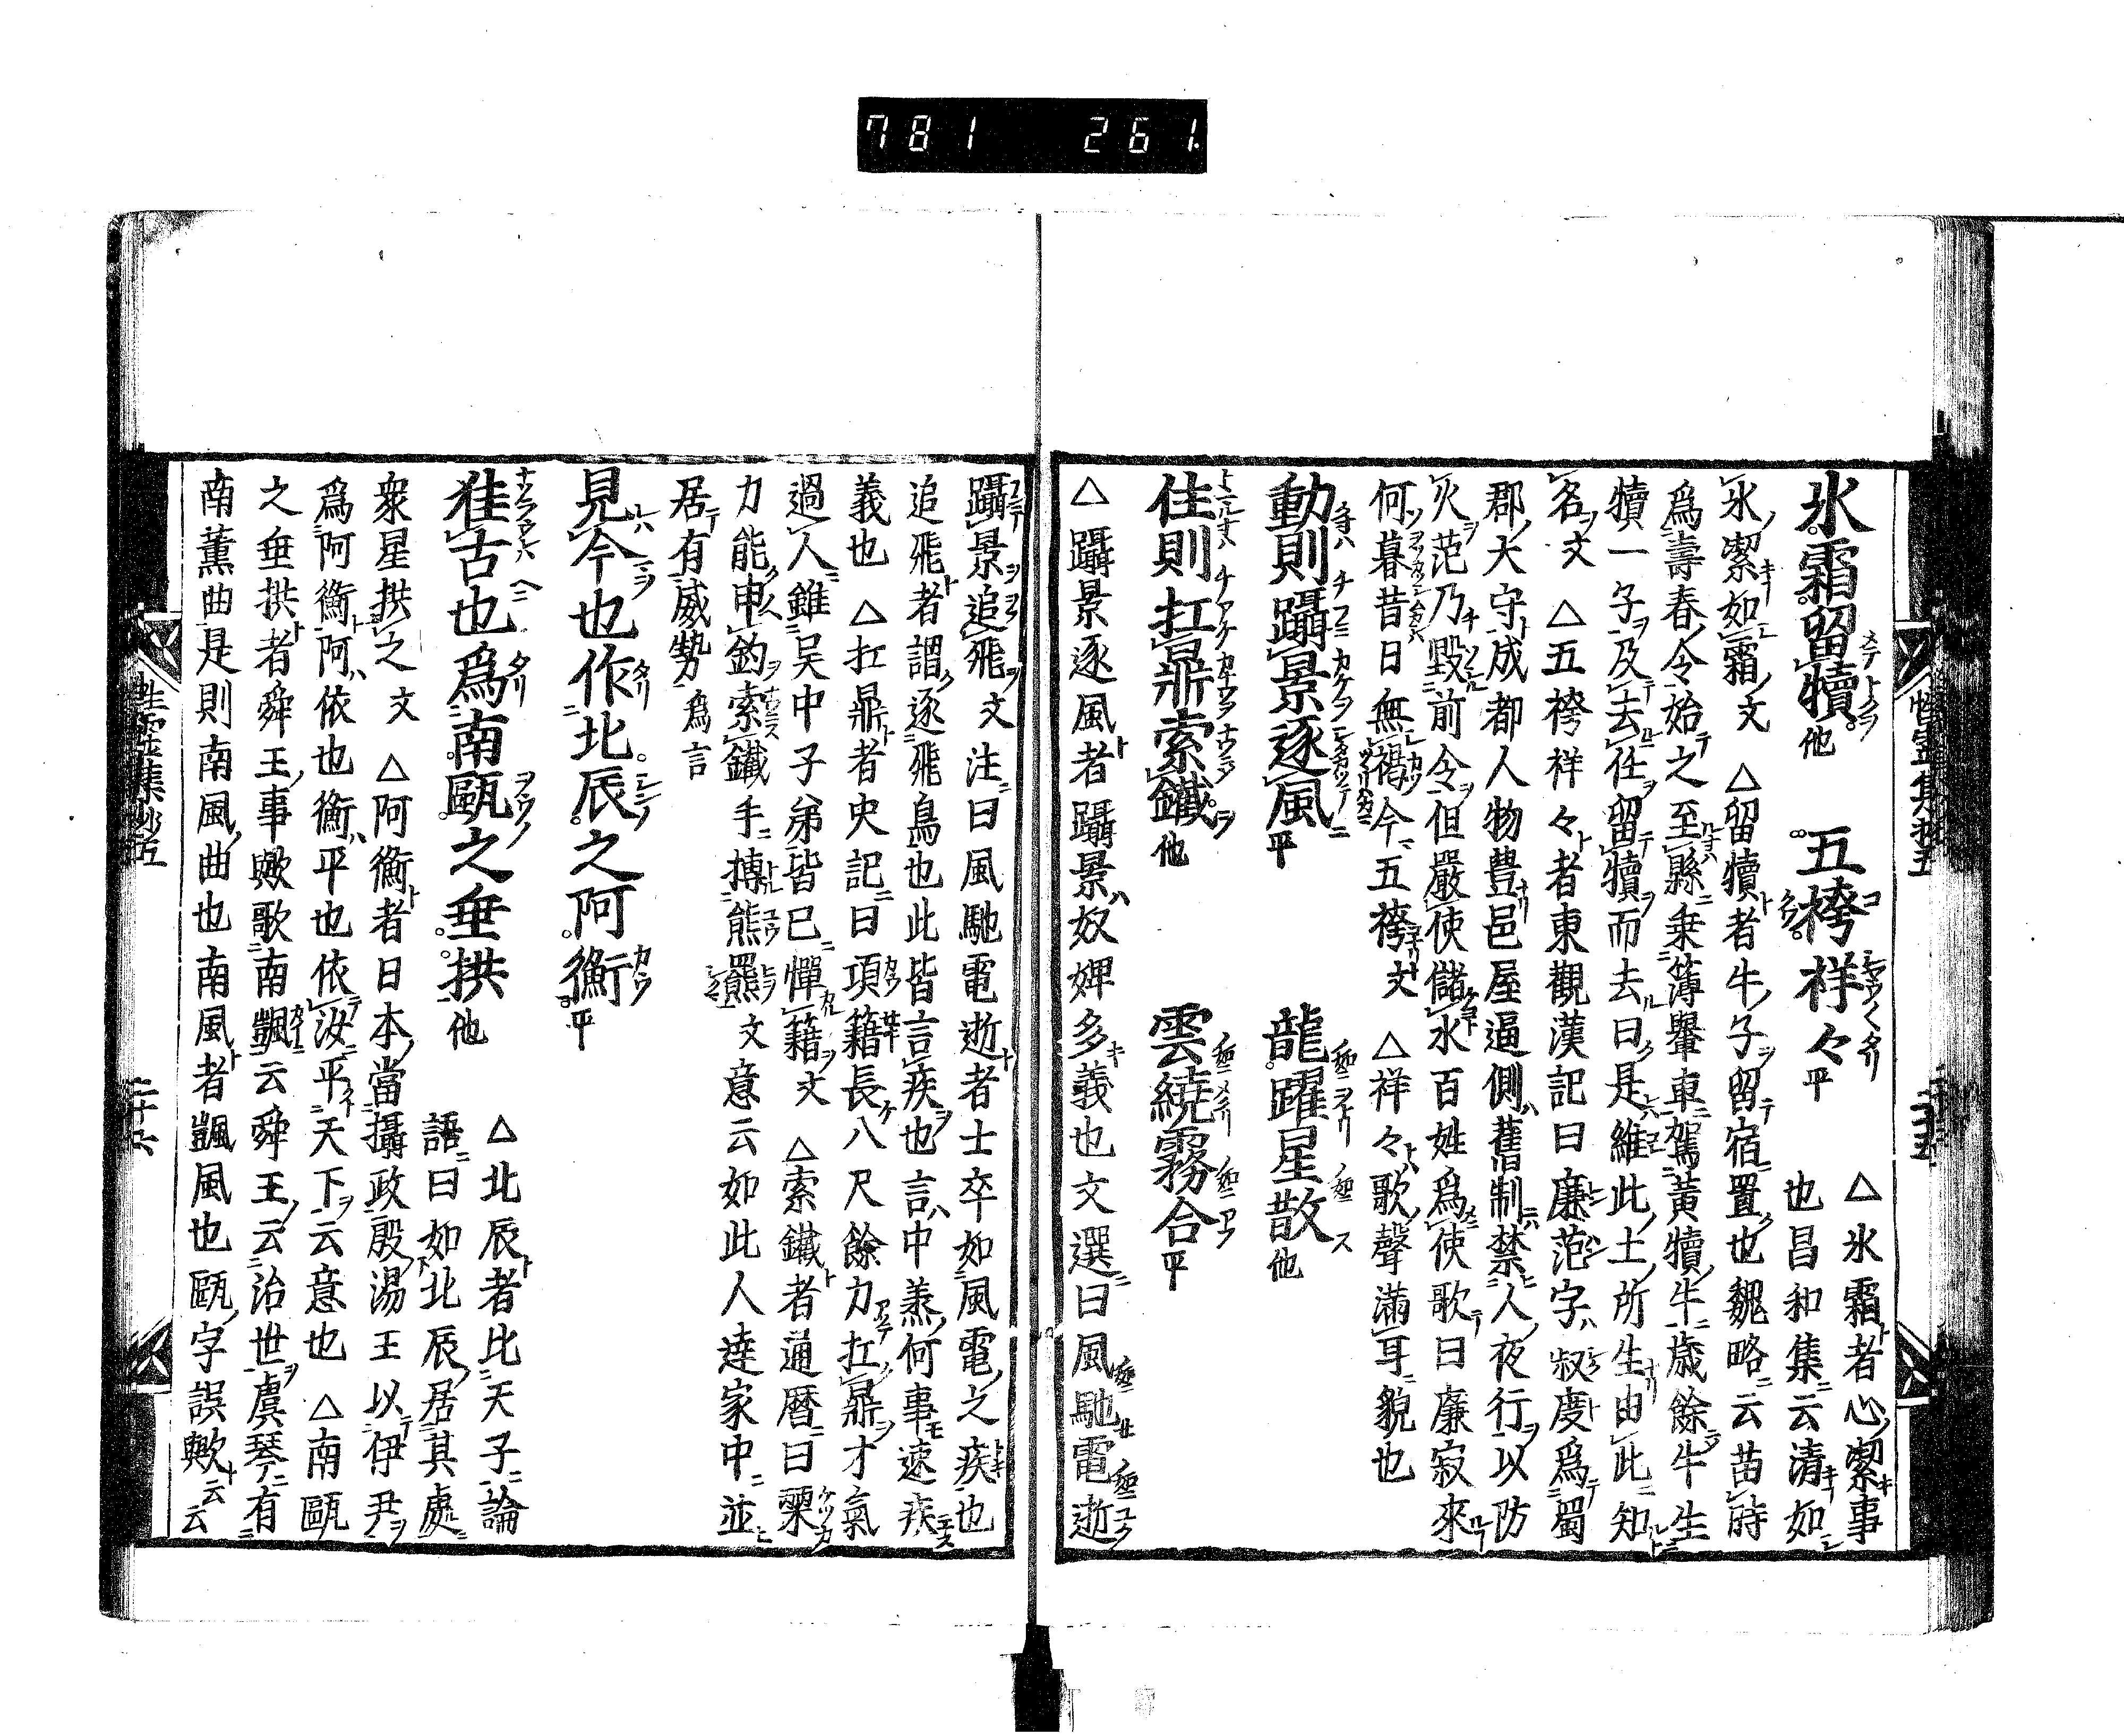 781 261
氷霜留犢他 五袴祥々平
△氷霜者心潔事
也昌和集云清如
氷潔如霜文 △留犢者牛子留宿置也魏略云苗時
爲壽春令始之至縣乗薄轝車駕黃犢牛歳餘牛生
犢一子及去任留犢而去曰是維此土所生由此知
名文 △五袴祥々者東觀漢記曰廉范字叔度爲蜀
郡大守成都人物豊邑屋逼側舊制禁人夜行以防
火范乃毀前令但嚴使儲水百姓爲使歌曰廉寂來
何暮昔日無襦今五袴文 △祥々歌聲滿耳貌也
動則躡景逐風平 龍躍星散他
住則扛鼎索鐵他 雲繞霧合平
△躡景逐風者躡景奴婢多義也文選曰風馳電逝
躡景追飛文注曰風馳電逝者士卒如風電之疾也
追飛者謂逐飛鳥也此皆言疾也言中羕何事速疾
義也 △扛鼎者史記曰項籍長八尺餘力扛鼎才氣
過人雖吴中子弟皆已憚籍文 △索鐵者通暦曰桀
力能申釣索鐵手搏熊羆文意云如此人達家中並
居有威勢爲言
見今也作北辰之阿衡平
△北辰者比天子論
准古也爲南甌之垂拱他
語曰如北辰居其處
衆星拱之文 △阿衡者日本當攝政殷湯王以伊尹
爲阿衡阿依也衡平也依汝平天下云意也 △南甌
之垂拱者舜王事歟歌南颽云舜王云治世虞琴有
南薫曲是則南風曲也南風者颽風也甌字誤歟云云
性霊集抄五
二十六